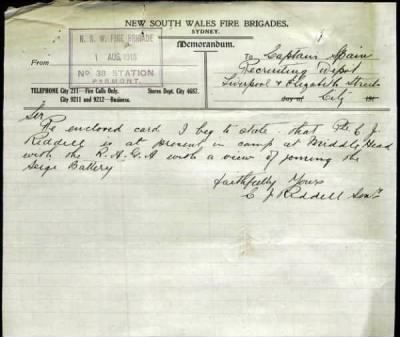 NEW SOUTH WALES FIRE BRIGADES.
SYDNEY.
Memorandum.
N. S. W. FIRE BRIGADE
1 AUG. 1915
No 38 STATION
PYRMONT.
From
To Captain Spain
Recruiting Depot
Liverpool & Elizabeth Streets
City
day of 191
TELEPHONE City 211 — Fire Calls Only. Stores Dept. City 6687.
City 9211 and 9212 — Business.
Sir
Re enclosed card I beg to state that Pte C J
Riddell is at present in camp at Middle Head
with the R.A.G.A with a view of joining the
Seige Battery
Faithfully Yours
C J Riddell Senr